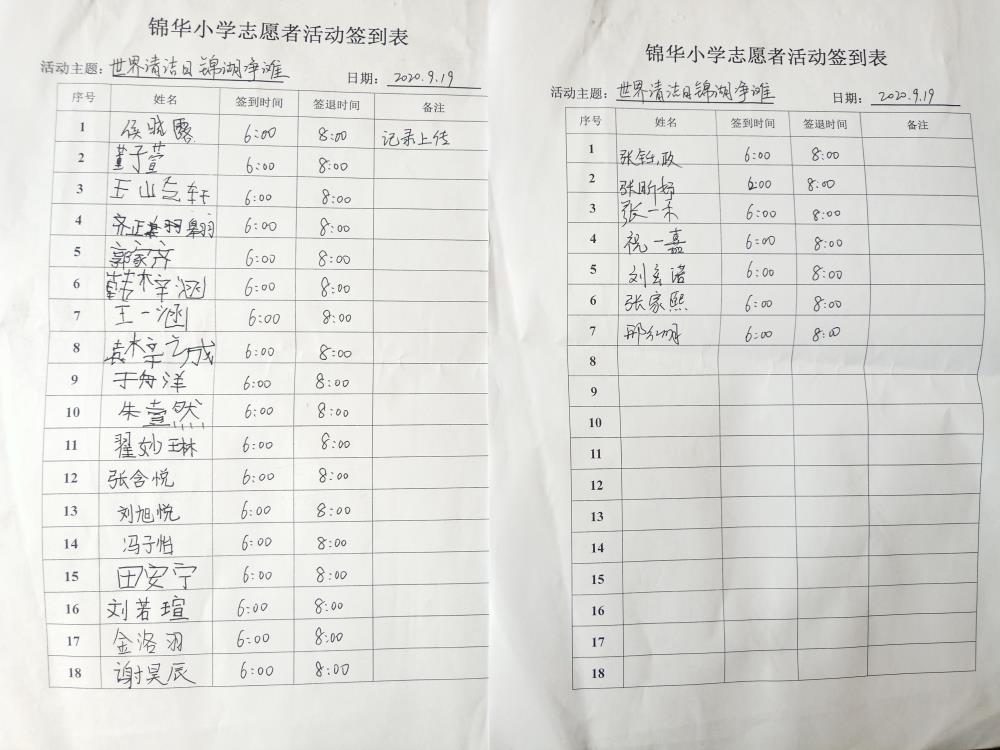 锦华小学志愿者活动签到表
活动主题：世界清洁日锦湖净滩 日期：2020.9.19
序号 姓名 签到时间 签退时间 备注
1 侯晓露 6:00 8:00 记录上传
2 董子萱 6:00 8:00
3 王山与轩 6:00 8:00
4 6:00 8:00
5 郭家齐 6:00 8:00
6 韩梓涵 6:00 8:00
7 王一涵 6:00 8:00
8 袁梓成 6:00 8:00
9 于舟洋 6:00 8:00
10 朱壹然 6:00 8:00
11 翟妙琳 6:00 8:00
12 张含悦 6:00 8:00
13 刘旭悦 6:00 8:00
14 冯子怡 6:00 8:00
15 田安宁 6:00 8:00
16 刘若瑄 6:00 8:00
17 金洛羽 6:00 8:00
18 谢昊辰 6:00 8:00
锦华小学志愿者活动签到表
活动主题：世界清洁日锦湖净滩 日期：2020.9.19
序号 姓名 签到时间 签退时间 备注
1 张钰政 6:00 8:00
2 张昕妤 6:00 8:00
3 张一禾 6:00 8:00
4 祝一嘉 6:00 8:00
5 刘玄诺 6:00 8:00
6 张家熙 6:00 8:00
7 6:00 8:00
8
9
10
11
12
13
14
15
16
17
18